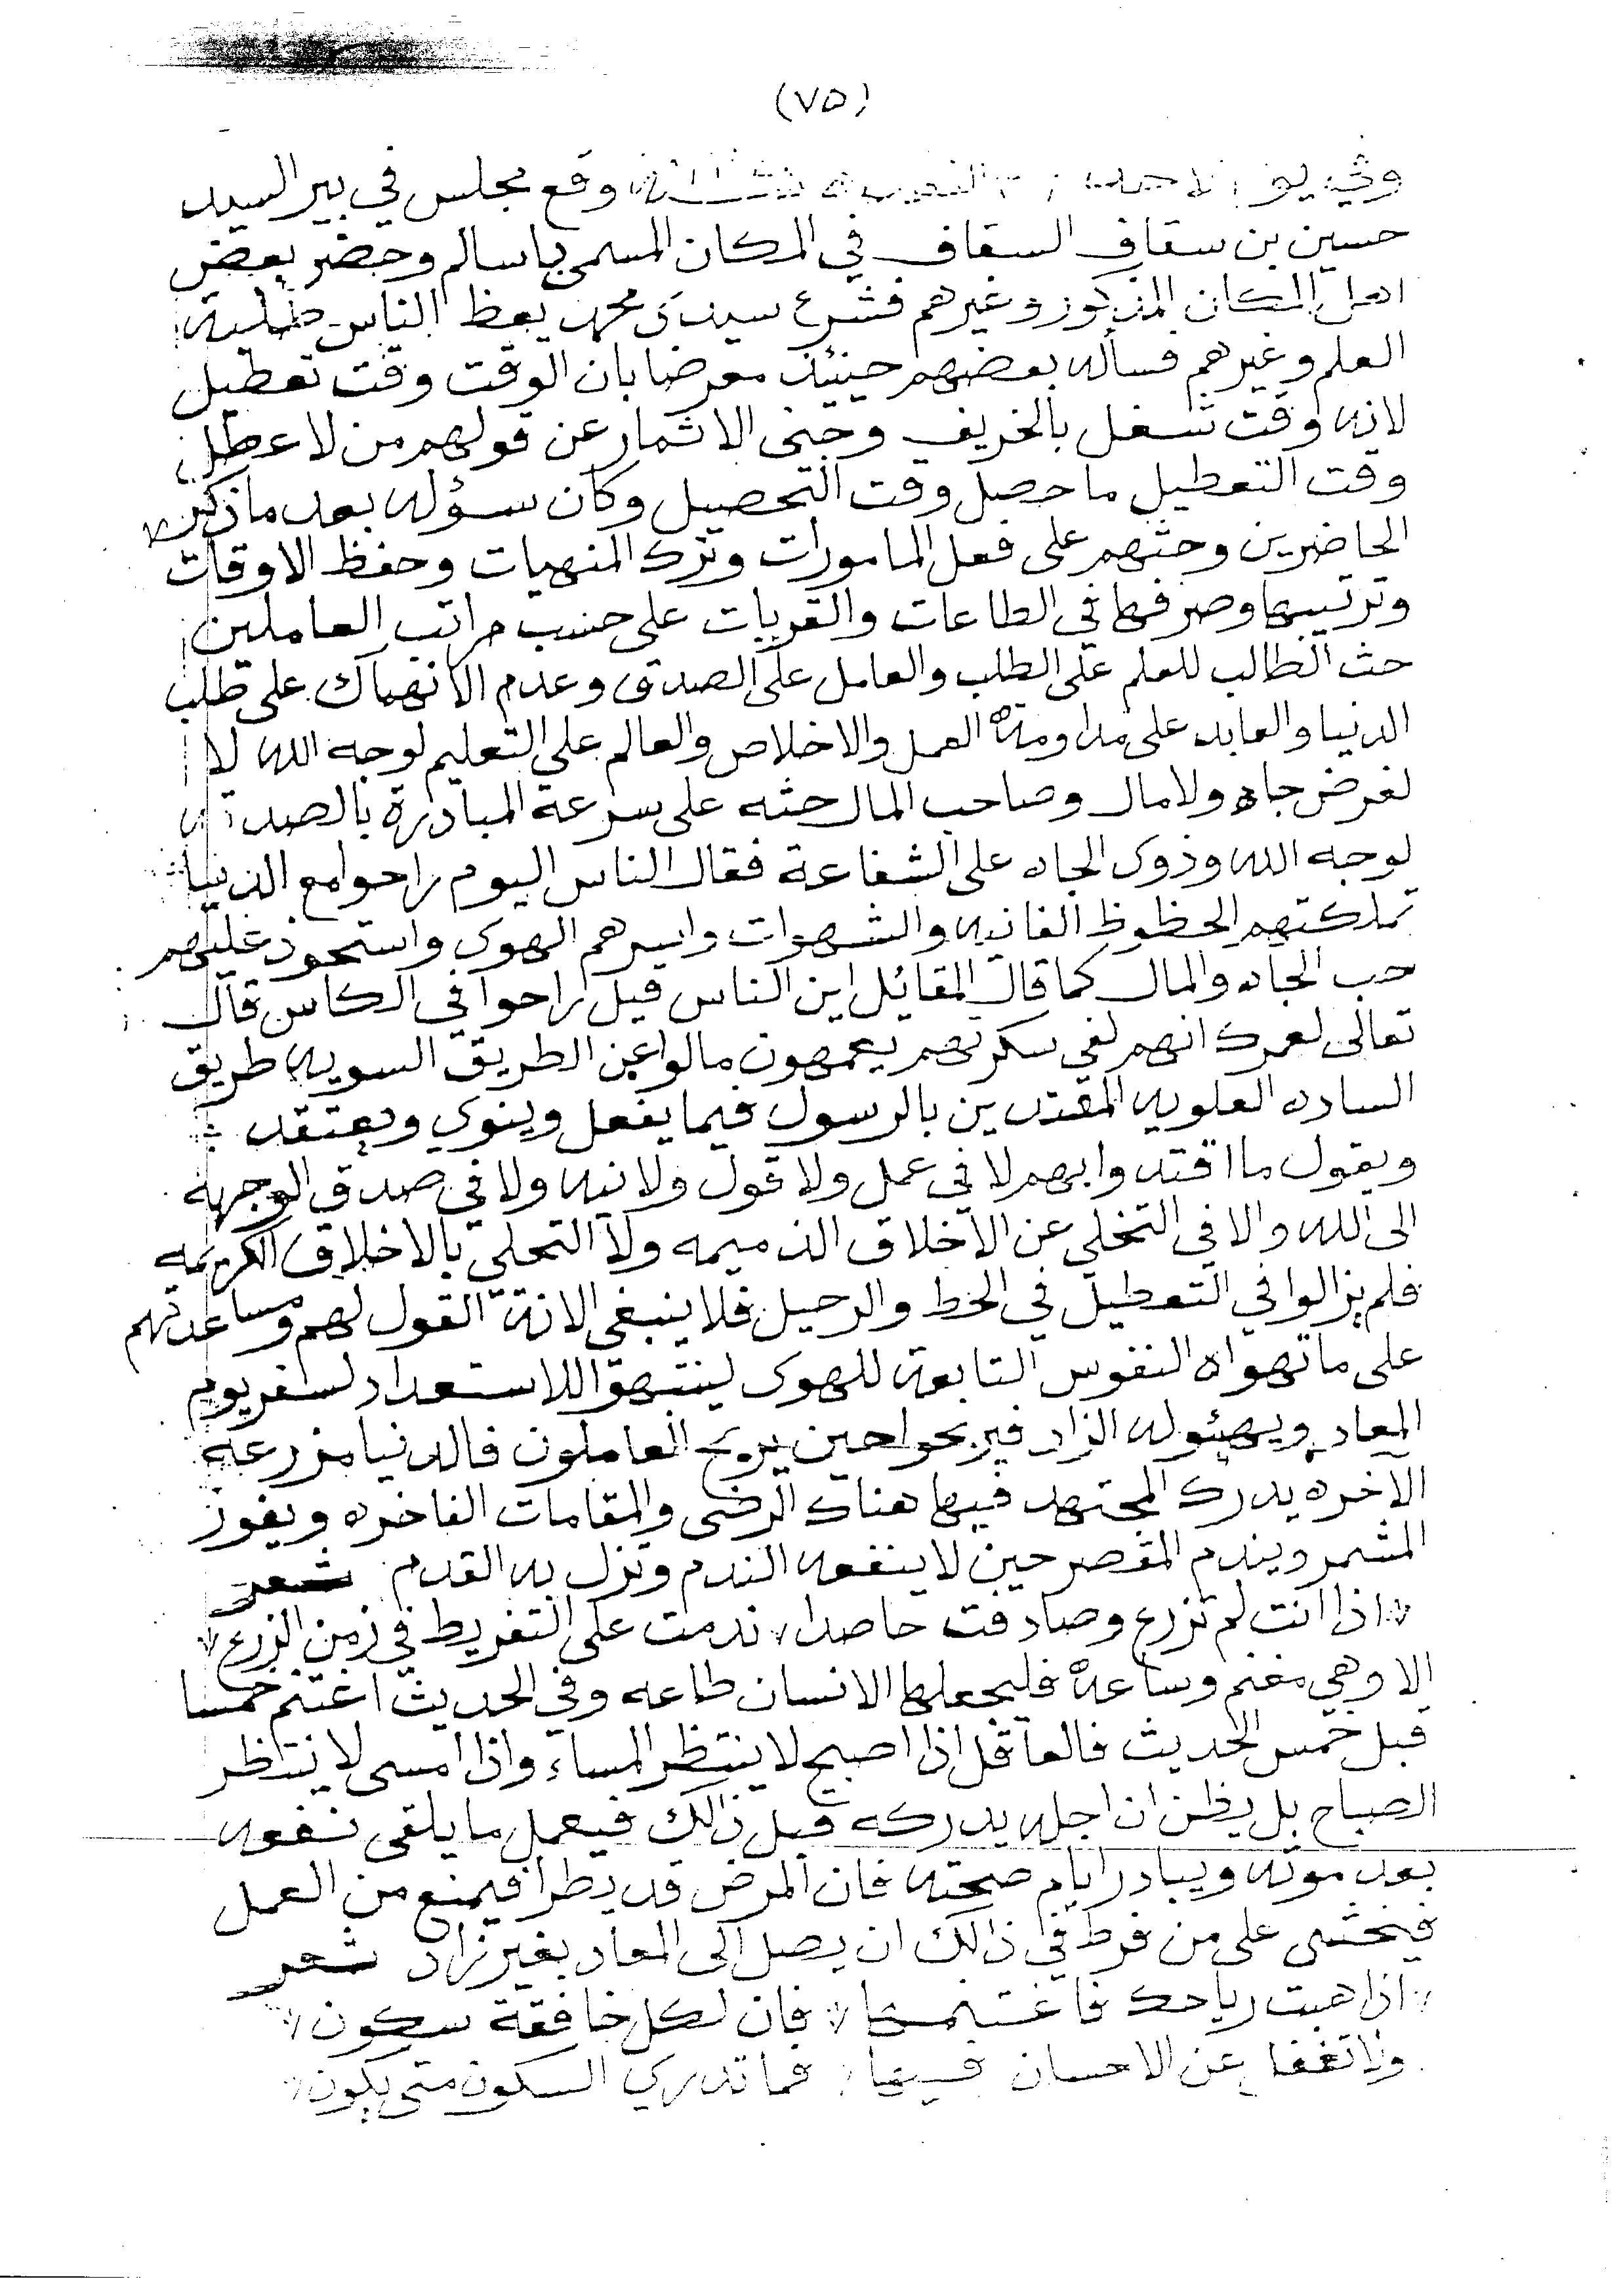 (٧٥)
وقع مجلس في بير السيد
حسين بن سقاف السقاف في المكان المسمى باسالم وحضر بعض
اهل المكان المذكور وغيرهم فشرع سيدى محمد يعظ الناس طلبة
العلم وغيرهم فساله بعضهم حينئذ معرضا بان الوقت وقت تعطيل
لانه وقت شغل بالخريف وجنى الاثمار عن قولهم من لا عطل
وقت التعطيل ما حصل وقت التحصيل وكان سؤله بعد ما ذكر
الحاضرين وحثهم على فعل المامورات وترك المنهيات وحفظ الاوقات
وترتيبها وصرفها في الطاعات والقربات على حسب مراتب العاملين
حث الطالب للعلم على الطلب والعامل على الصدق وعدم الانهماك على طلب
الدنيا والعابد على مداومة العمل والاخلاص والعالم على التعليم لوجه الله لا
لغرض جاه ولا مال وصاحب المال حثه على سرعة المبادرة
لوجه الله وذوى الجاه على الشفاعة فقال الناس اليوم راحوا مع الدنيا
تملكتهم الحظوظ الفانيه والشهوات واسرهم الهوى واستحوذ عليهم
حب الجاه والمال كما قال القائل اين الناس قيل راحوا في الكاس قال
تعالى لعمرك انهم لفي سكرتهم يعمهون مالوا عن الطريق السويه طريق
الساده العلويه المقتدين بالرسول فيما يفعل وينوي ويعتقد
ويقول ما اقتدوا بهم لا في عمل ولا قول ولا نيه ولا في صدق الوجهة
الى الله والا في التخلي عن الاخلاق الذميمه ولا التحلي بالاخلاق الكريمه
فلم يزالوا في التعطيل في الحط والرحيل فلا ينبغى الانة القول لهم ومساعدتهم
على ما تهواه النفوس التابعة للهوى لينتبهوا للاستعداد لسفر يوم
المعاد ويهيئو له الزاد فيربحوا حين يربح العاملون فالدنيا مزرعه
الآخره يدرك المجتهد فيها هناك الرضى والمقامات الفاخره ويفوز
المشمر ويندم المقصر حين لا ينفعه الندم وتزل به القدم شعر
اذا انت لم تزرع وصادفت حاصدا ندمت على التفريط في زمن الزرع
الا وهي مغنم وساعة فليجعلها الانسان طاعه وفي الحديث اغتنم خمسا
قبل خمس الحديث فالعاقل اذا اصبح لا ينتظر المساء واذا امسى لا ينتظر
الصباح بل يظن ان اجله يدركه قبل ذالك فيعمل ما يلقى نفعه
بعد موته ويبادر ايام صحته فان المرض قد يطرا فيمنع من العمل
فيخشى على من فرط في ذالك ان يصل الى المعاد بغير زاد شعر
اذا هبت رياحك فاغتنمها فان لكل خافقة سكون
ولا تغفل عن الاحسان فيها فما تدري السكون متى يكون